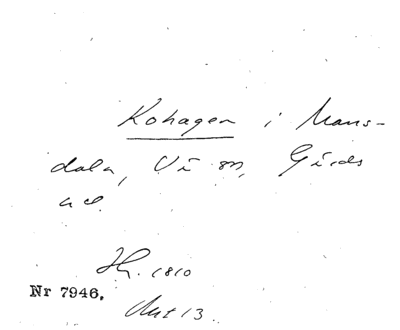 Kohagen i Mans-
dala, Vi sn, Gärds
hd.
Hg. 1810
Nr 7946.
Akt 13.